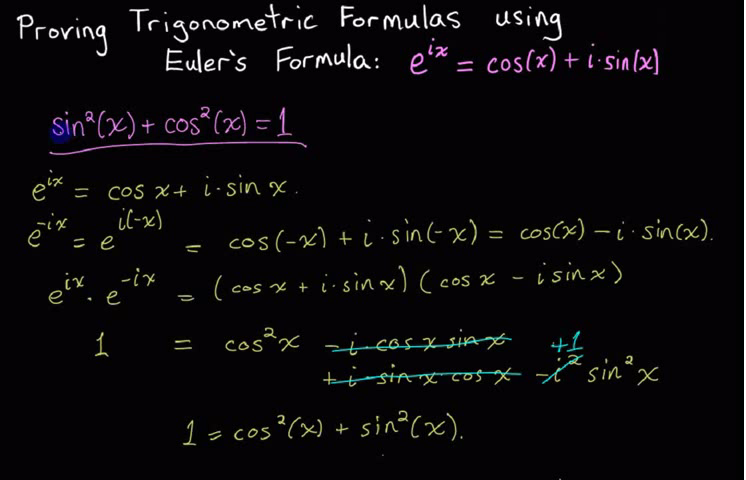 Proving Trigonometric Formulas using
Euler's Formula: e^{ix} = cos(x) + i·sin(x)
sin²(x) + cos²(x) = 1
e^{ix} = cos x + i·sin x.
e^{-ix} = e^{i(-x)} = cos(-x) + i·sin(-x) = cos(x) - i·sin(x).
e^{ix}·e^{-ix} = (cos x + i·sin x)(cos x - i sin x)
1 = cos²x - i·cos x sin x +1
+ i·sin x·cos x - i² sin²x
1 = cos²(x) + sin²(x).